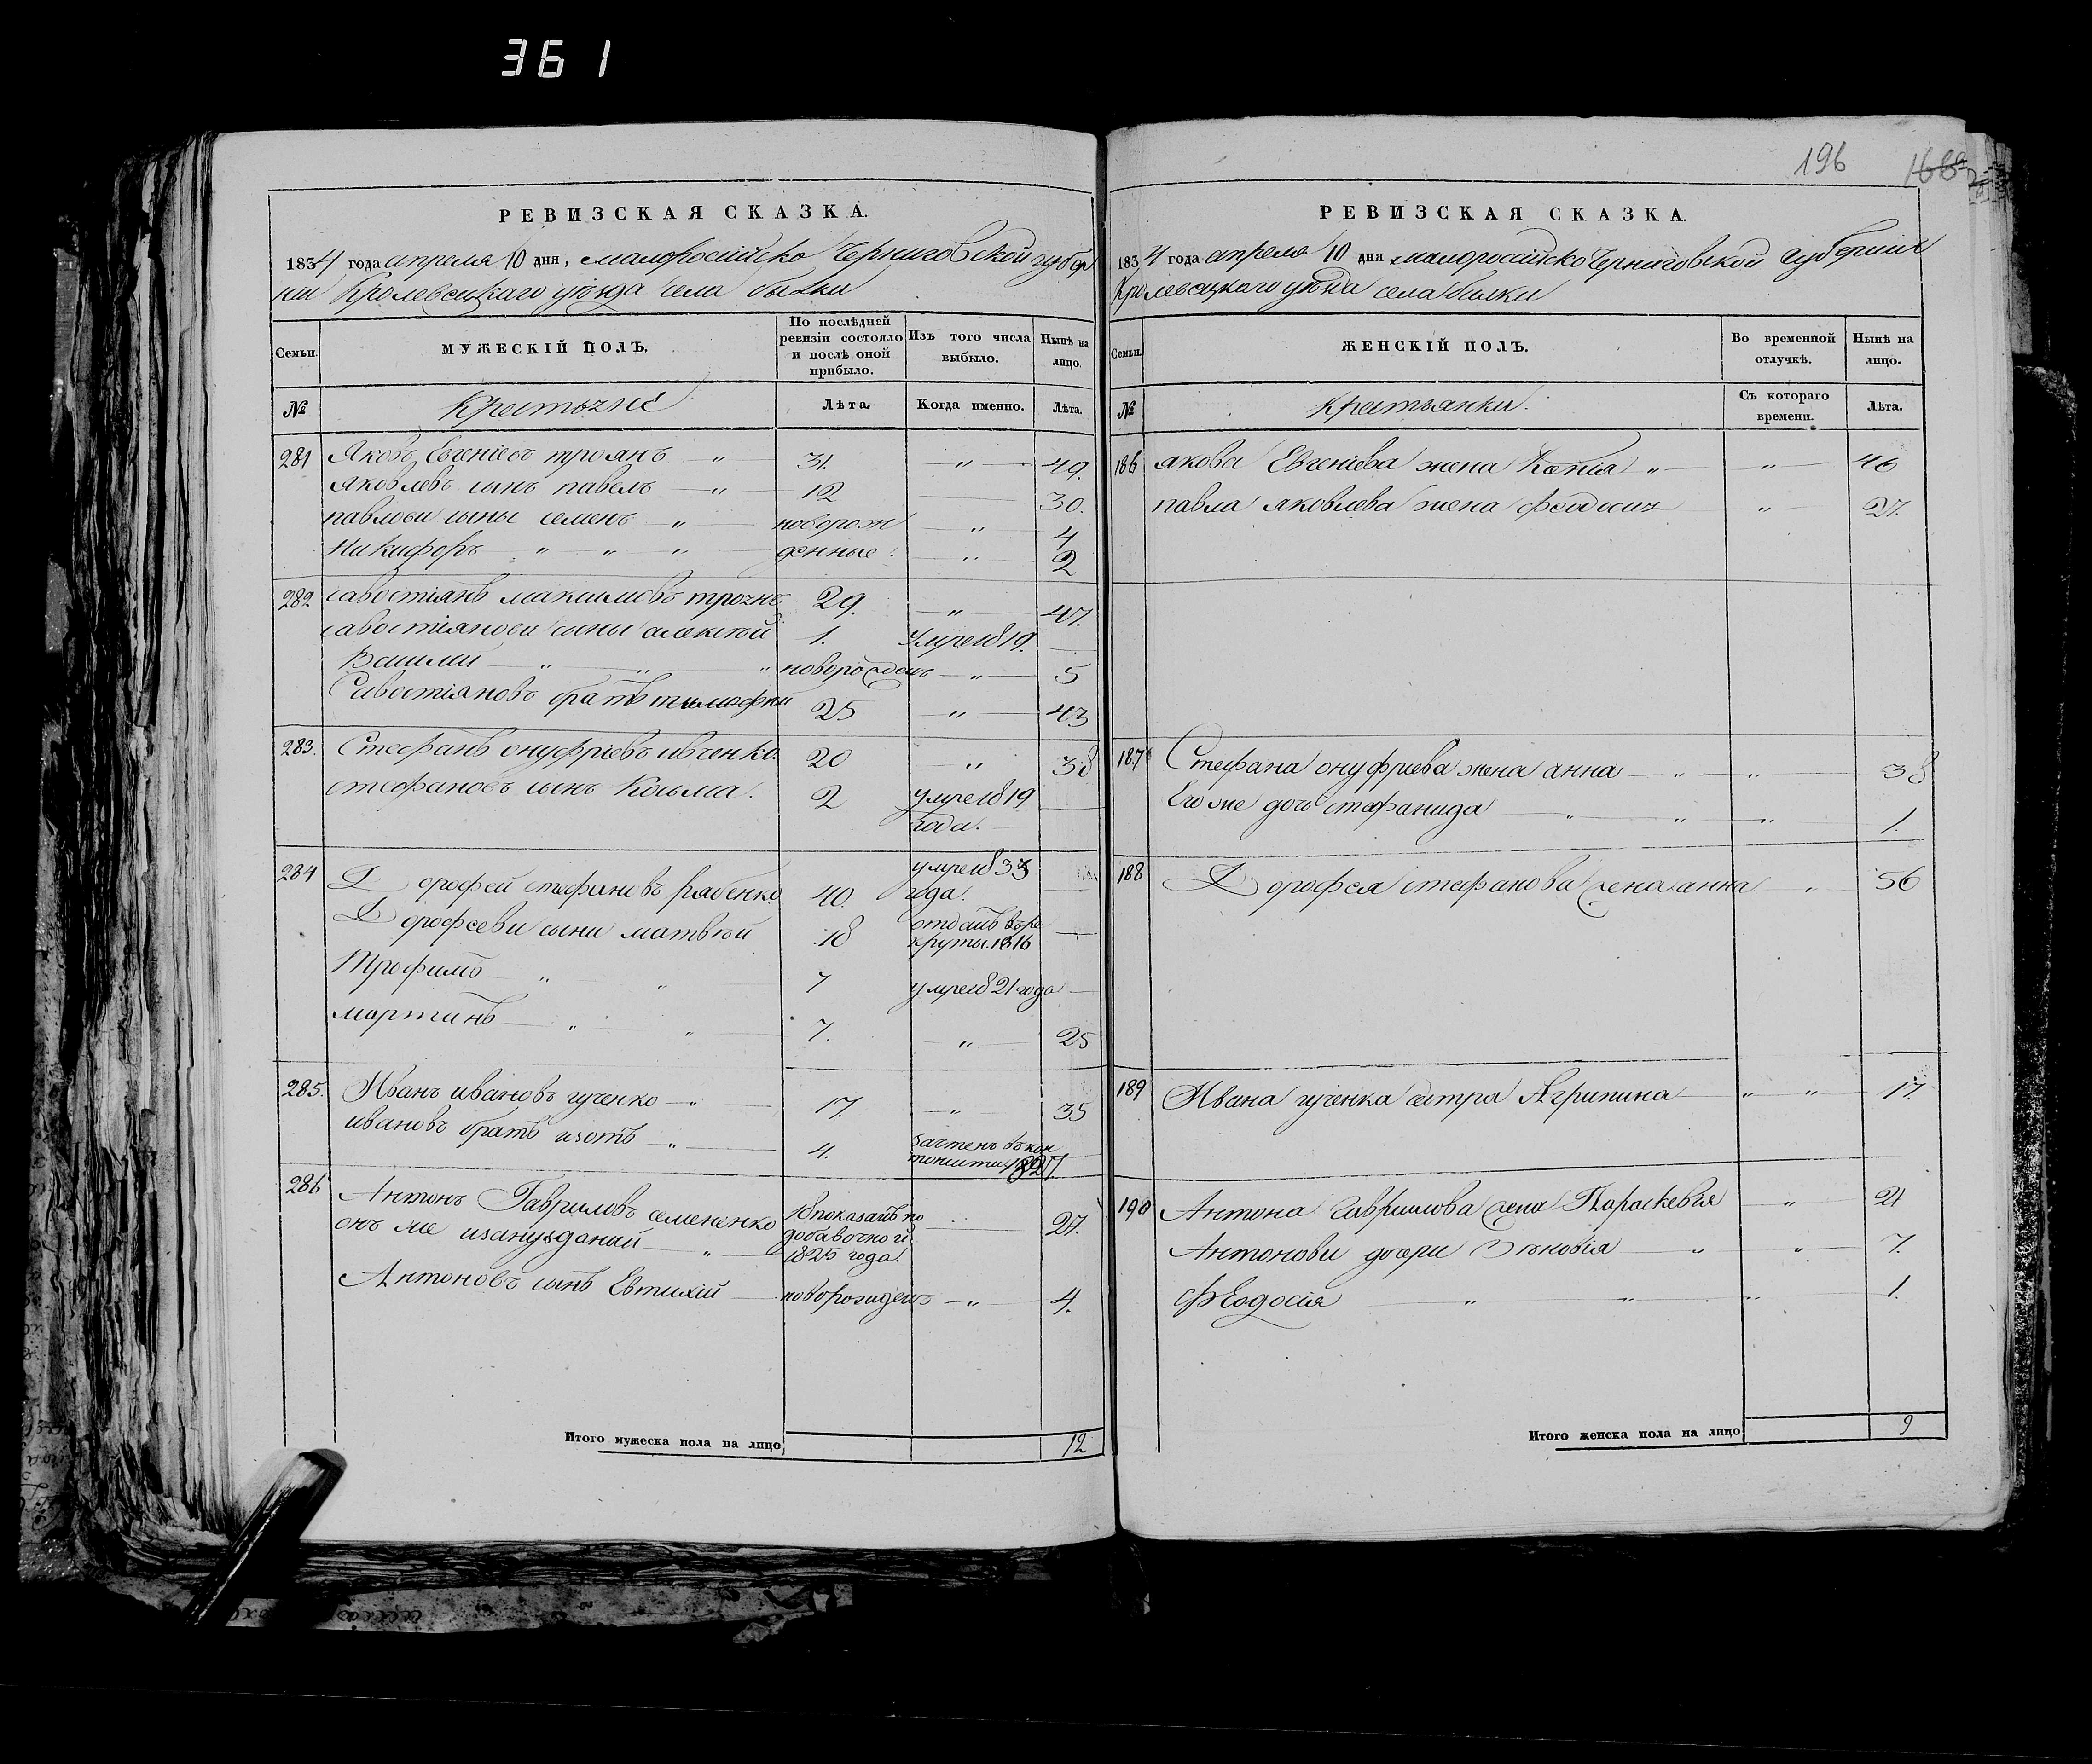 361
196
РЕВИЗСКАЯ СКАЗКА.
1834 года апреля 10 дня, малоросійско Черниговской губер
ніи Кролевецкаго уѣзда села билки
Семьи. МУЖЕСКІЙ ПОЛЪ. По послѣдней ревизіи состояло и послѣ оной прибыло. Изъ того числа выбыло. Нынѣ на лицо.
№ Крестьяне Лѣта. Когда именно. Лѣта.
281 Яковъ Евгеніевъ троянъ — „ — 31. — „ — 49.
Яковлевъ сынъ павелъ — „ — 12 — 30.
павлови сыны семенъ — „ — новорож — „ — 4
Никифоръ — „ — „ — „ — денные. — „ — 2
282 савостіянъ максимовъ троянъ 29. — „ — 47.
савостіянови сыны алексѣй 1. Умре 1819. —
Василій — „ — „ — „ новорожденъ — „ — 5
Савостіяновъ братъ тимофей 25 — „ — 43
283. Стефанъ онуфріевъ ивченко. 20 — „ 38
стефановъ сынъ Козьма. 2 умре 1819 —
года. —
284 Дорофей стефановъ рябенко 40. умре 1833 года. —
Дорофееви сыни матвѣй 18 отданъ въ ре —
круты. 1816
Трофимъ — „ „ — 7 умре 1821 года —
мартинъ — „ „ — 7. — „ — 25
285. Иванъ ивановъ гученко — „ — 17. — „ — 35
ивановъ братъ изотъ — „ — 4. зачтенъ въ кан —
тонисты 1827.
286 Антонъ Гавриловъ семененко 18 показанъ по — 27.
онъ же — „ — добавочной
1825 года.
Антоновъ сынъ Евтихій — новорожденъ — „ — 4.
Итого мужеска пола на лицо 12
РЕВИЗСКАЯ СКАЗКА.
1834 года апреля 10 дня малоросійско Черниговской губерніи
Кролевецкаго уѣзда села билки
Семьи. ЖЕНСКІЙ ПОЛЪ. Во временной отлучкѣ. Нынѣ на лицо.
№ Крестьянки. Съ котораго времени. Лѣта.
186 якова Евгеніева жена „ — „ — 46
павла яковлева жена феодосия „ — 27.
187 Стефана онуфріева жена анна — „ — „ — 38
Его же дочь стефанида — „ — „ — „ — 1.
188 Дорофея стефанова жена анна „ — 56
189 Ивана гученка сестра Агрипина — „ — „ — 17.
190 Антона Гаврилова жена Параскевія — „ — 21
Антонови дочери Зѣновія — „ — „ — 7.
Феодосія — „ — „ — „ — 1.
Итого женска пола на лицо 9